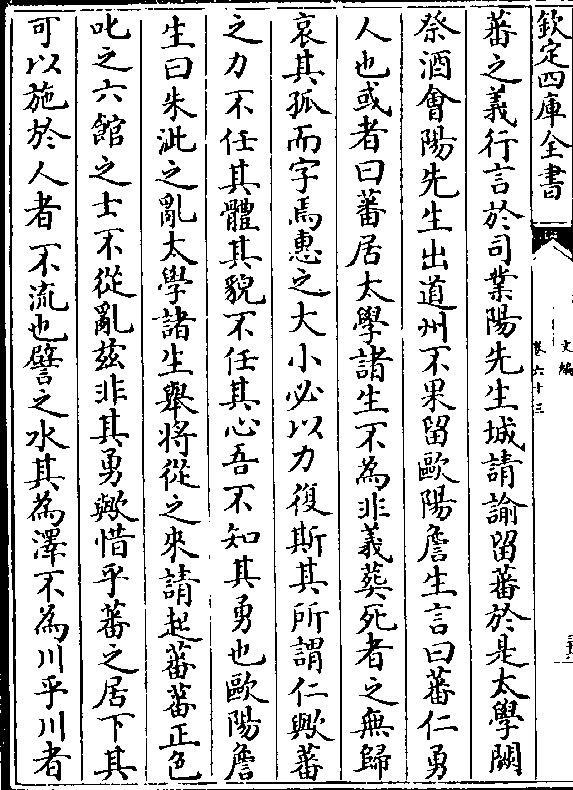 欽定四庫全書
文編
卷六十三
蕃之義行言於司業陽先生城請諭留蕃於是太學闕
祭酒會陽先生出道州不果留歐陽詹生言曰蕃仁勇
人也或者曰蕃居太學諸生不為非義葬死者之無歸
哀其孤而字焉惠之大小必以力復斯其所謂仁歟蕃
之力不任其體其貌不任其心吾不知其勇也歐陽詹
生曰朱泚之亂太學諸生舉將從之來請起蕃蕃正色
叱之六館之士不從亂茲非其勇歟惜乎蕃之居下其
可以施於人者不流也譬之水其為澤不為川乎川者